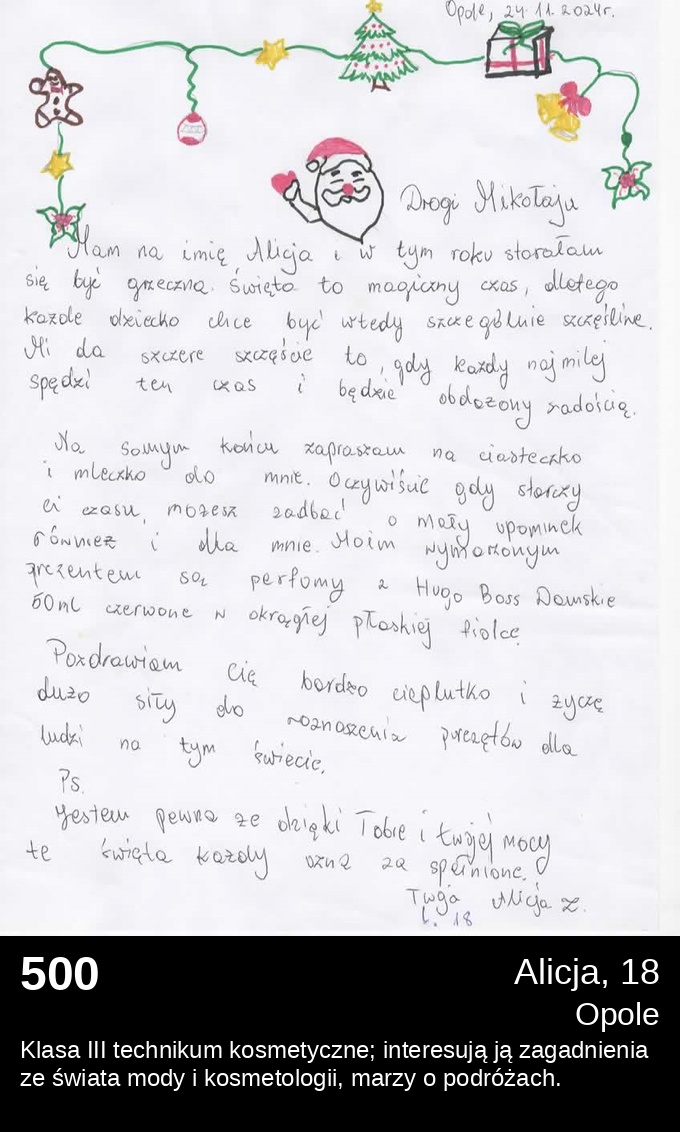 Opole, 24.11.2024r.
Drogi Mikołaju
Mam na imię Alicja i w tym roku starałam
się być grzeczna. Święta to magiczny czas, dlatego
każde dziecko chce być wtedy szczególnie szczęśliwe.
Mi da szczere szczęście to, gdy każdy najmilej
spędzi ten czas i będzie obdażony radością.
Na samym końcu zapraszam na ciasteczko
i mleczko do mnie. Oczywiście gdy starczy
ci czasu, możesz zadbać o mały upominek
również i dla mnie. Moim wymarzonym
prezentem są perfomy z Hugo Boss Damskie
50ml czerwone w okrągłej płaskiej fiolce
Pozdrawiam Cię bardzo cieplutko i życzę
dużo siły do roznoszenia prezętów dla
ludzi na tym świecie.
Ps.
Jestem pewna że dzięki Tobie i twojej mocy
te święta każdy uzna za spełnione.
Twoja Alicja Z.
l. 18
500
Alicja, 18
Opole
Klasa III technikum kosmetyczne; interesują ją zagadnienia
ze świata mody i kosmetologii, marzy o podróżach.